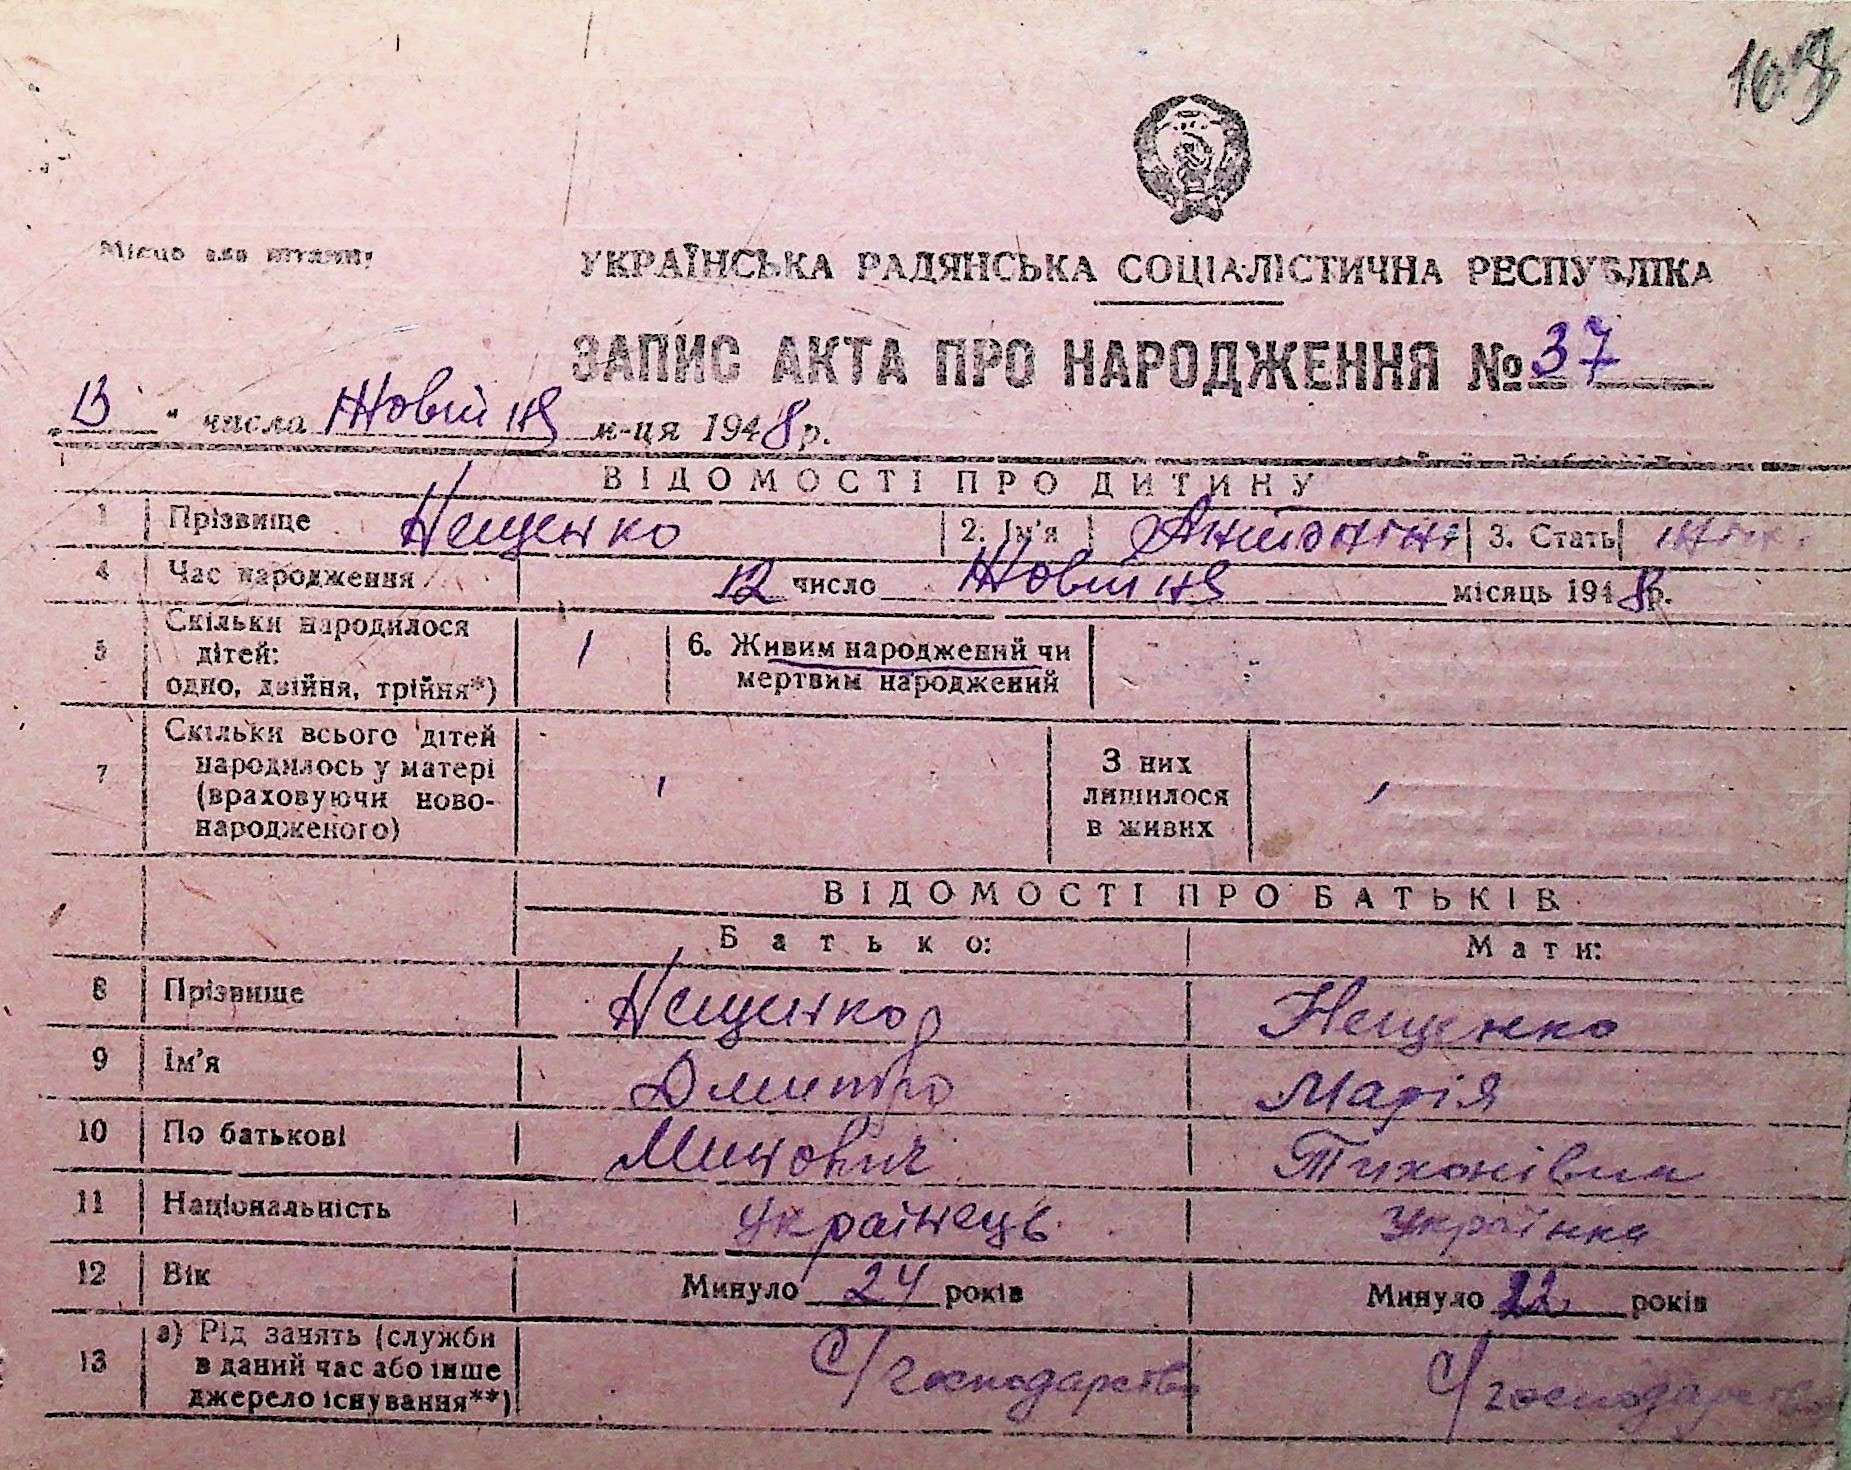 Місце для штампу
УКРАЇНСЬКА РАДЯНСЬКА СОЦІАЛІСТИЧНА РЕСПУБЛІКА
ЗАПИС АКТА ПРО НАРОДЖЕННЯ № 37
13 " числа Жовтня м-ця 1948 р.
ВІДОМОСТІ ПРО ДИТИНУ
1 Прізвище Нещенко 2. Ім'я Антоніна 3. Стать жін.
4 Час народження 12 число Жовтня місяць 1948 р.
5 Скільки народилося дітей: одно, двійня, трійня*) 1 6. Живим народжений чи мертвим народжений
7 Скільки всього дітей народилось у матері (враховуючи новонародженого) 1 З них лишилося в живих 1
ВІДОМОСТІ ПРО БАТЬКІВ
Батько: Мати:
8 Прізвище Нещенко Нещенко
9 Ім'я Дмитро Марія
10 По батькові Минович Тихонівна
11 Національність Українець Українка
12 Вік Минуло 24 років Минуло 22 років
13 а) Рід занять (служби в даний час або інше джерело існування**) С/господарство С/господарство